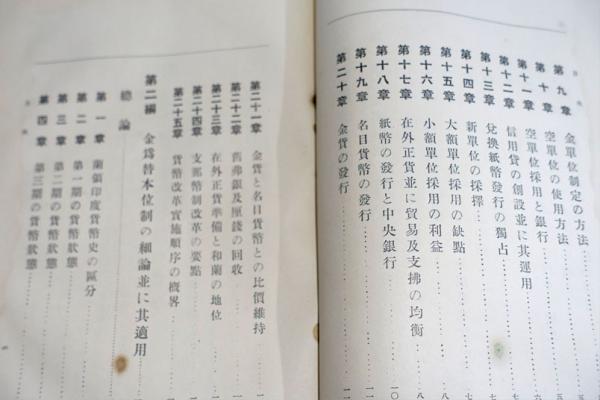 第九章 金單位制定の方法
第十章 空單位の使用方法
第十一章 空單位採用と銀行
第十二章 信用貸の創設並に其運用
第十三章 兌換紙幣發行の獨占
第十四章 新單位の採擇
第十五章 大額單位採用の缺點
第十六章 小額單位採用の利益
第十七章 在外正貨並に貿易及支拂の均衡
第十八章 紙幣の發行と中央銀行
第十九章 名目貨幣の發行
第二十章 金貨の發行
第二十一章 金貨と名目貨幣との比價維持
第二十二章 舊弗銀及厘錢の回收
第二十三章 在外正貨準備と和蘭の地位
第二十四章 支那幣制改革の要點
第二十五章 貨幣改革實施順序の概畧
第二編 金爲替本位制の細論並に其適用
總論
第一章 蘭領印度貨幣史の區分
第二章 第一期の貨幣狀態
第三章 第二期の貨幣狀態
第四章 第三期の貨幣狀態